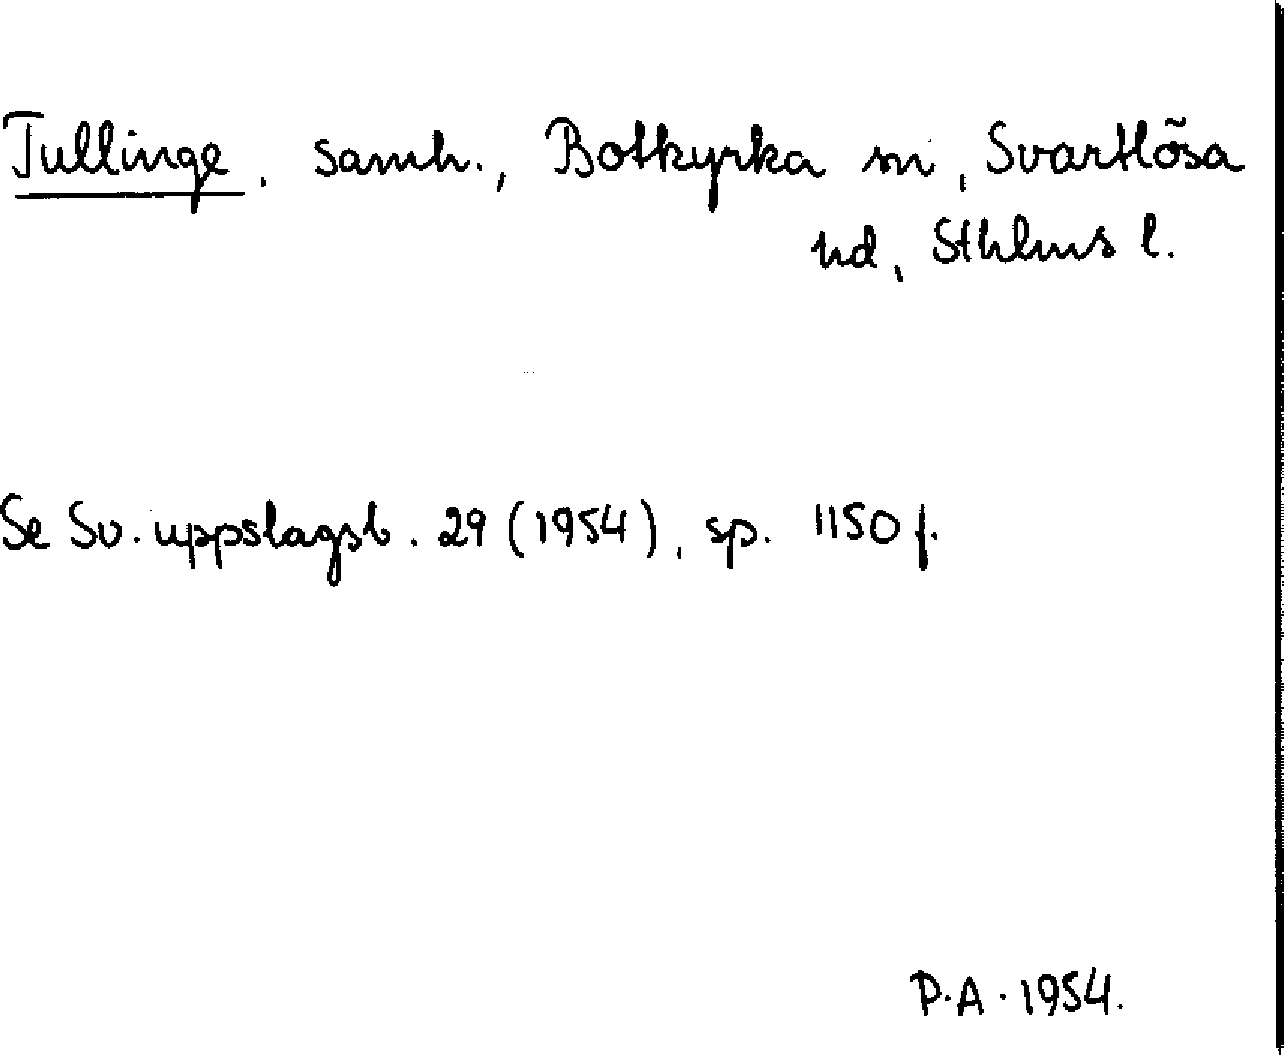 Tullinge, samh., Botkyrka sn, Svartlösa
hd, Sthlms l.
Se Sv. uppslagsb. 29 (1954), sp. 1150 f.
P.A. 1954.